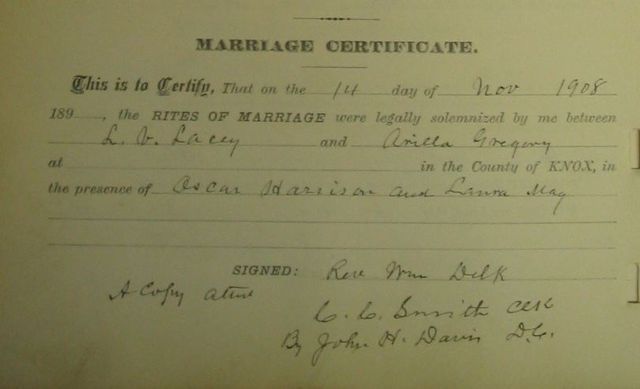 MARRIAGE CERTIFICATE.
This is to Certify, That on the 14 day of Nov 1908
189 , the RITES OF MARRIAGE were legally solemnized by me between
L. V. Lacey and Arilla Gregory
at in the County of KNOX, in
the presence of Oscar Harrison and Laura May
SIGNED: Rev Wm Delk
A Copy
C. C. Smith Clk
By John H. Davis D.C.